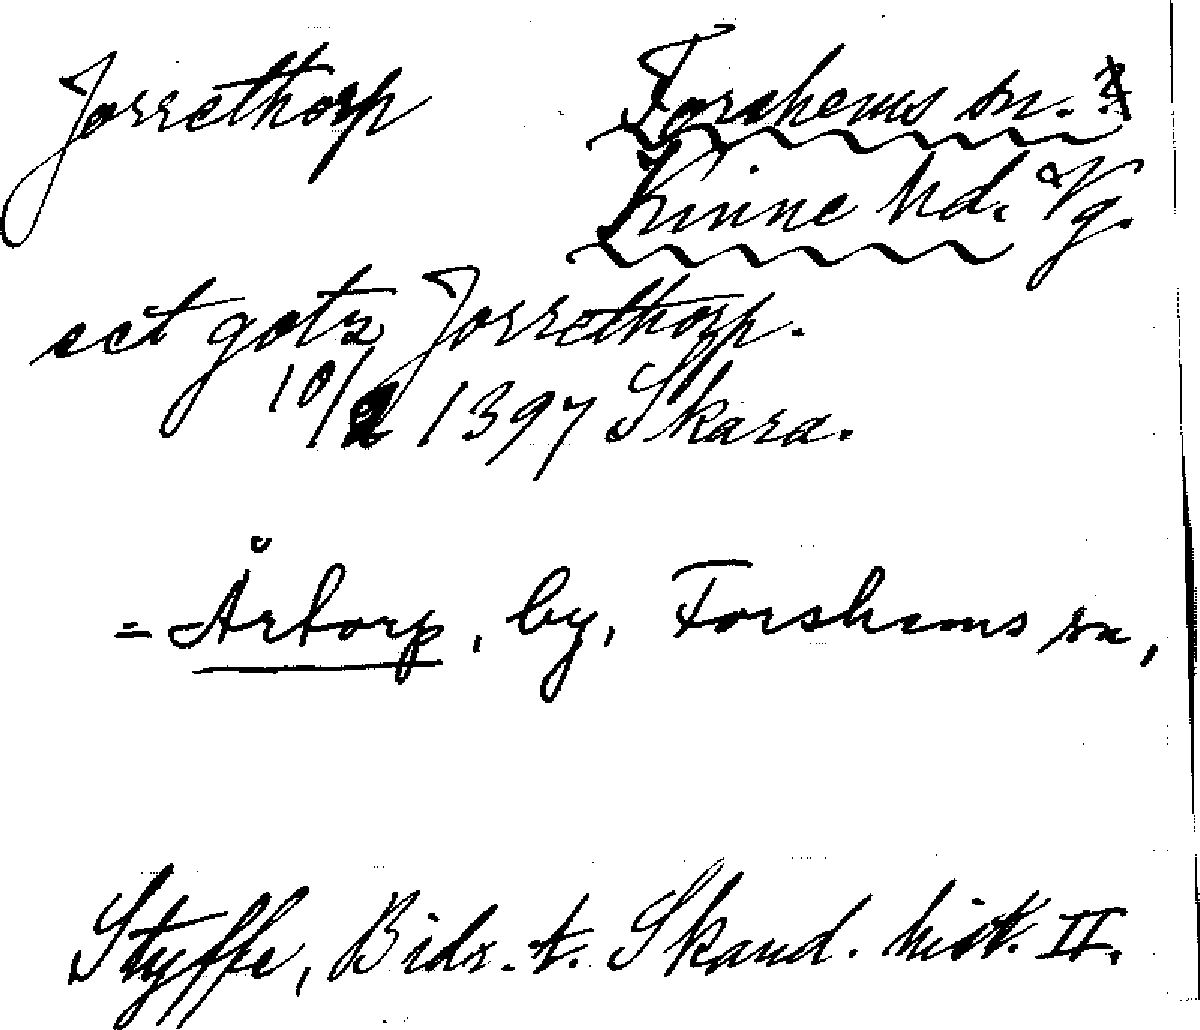 Jorrethorp Forshems sn.
Kinne hd. Vg.
ect gotz Jorrethorp.
10/2 1397 Skara.
= Årtorp, by, Forshems sn,
Styffe, Bidr. t. Skand. hist. II.